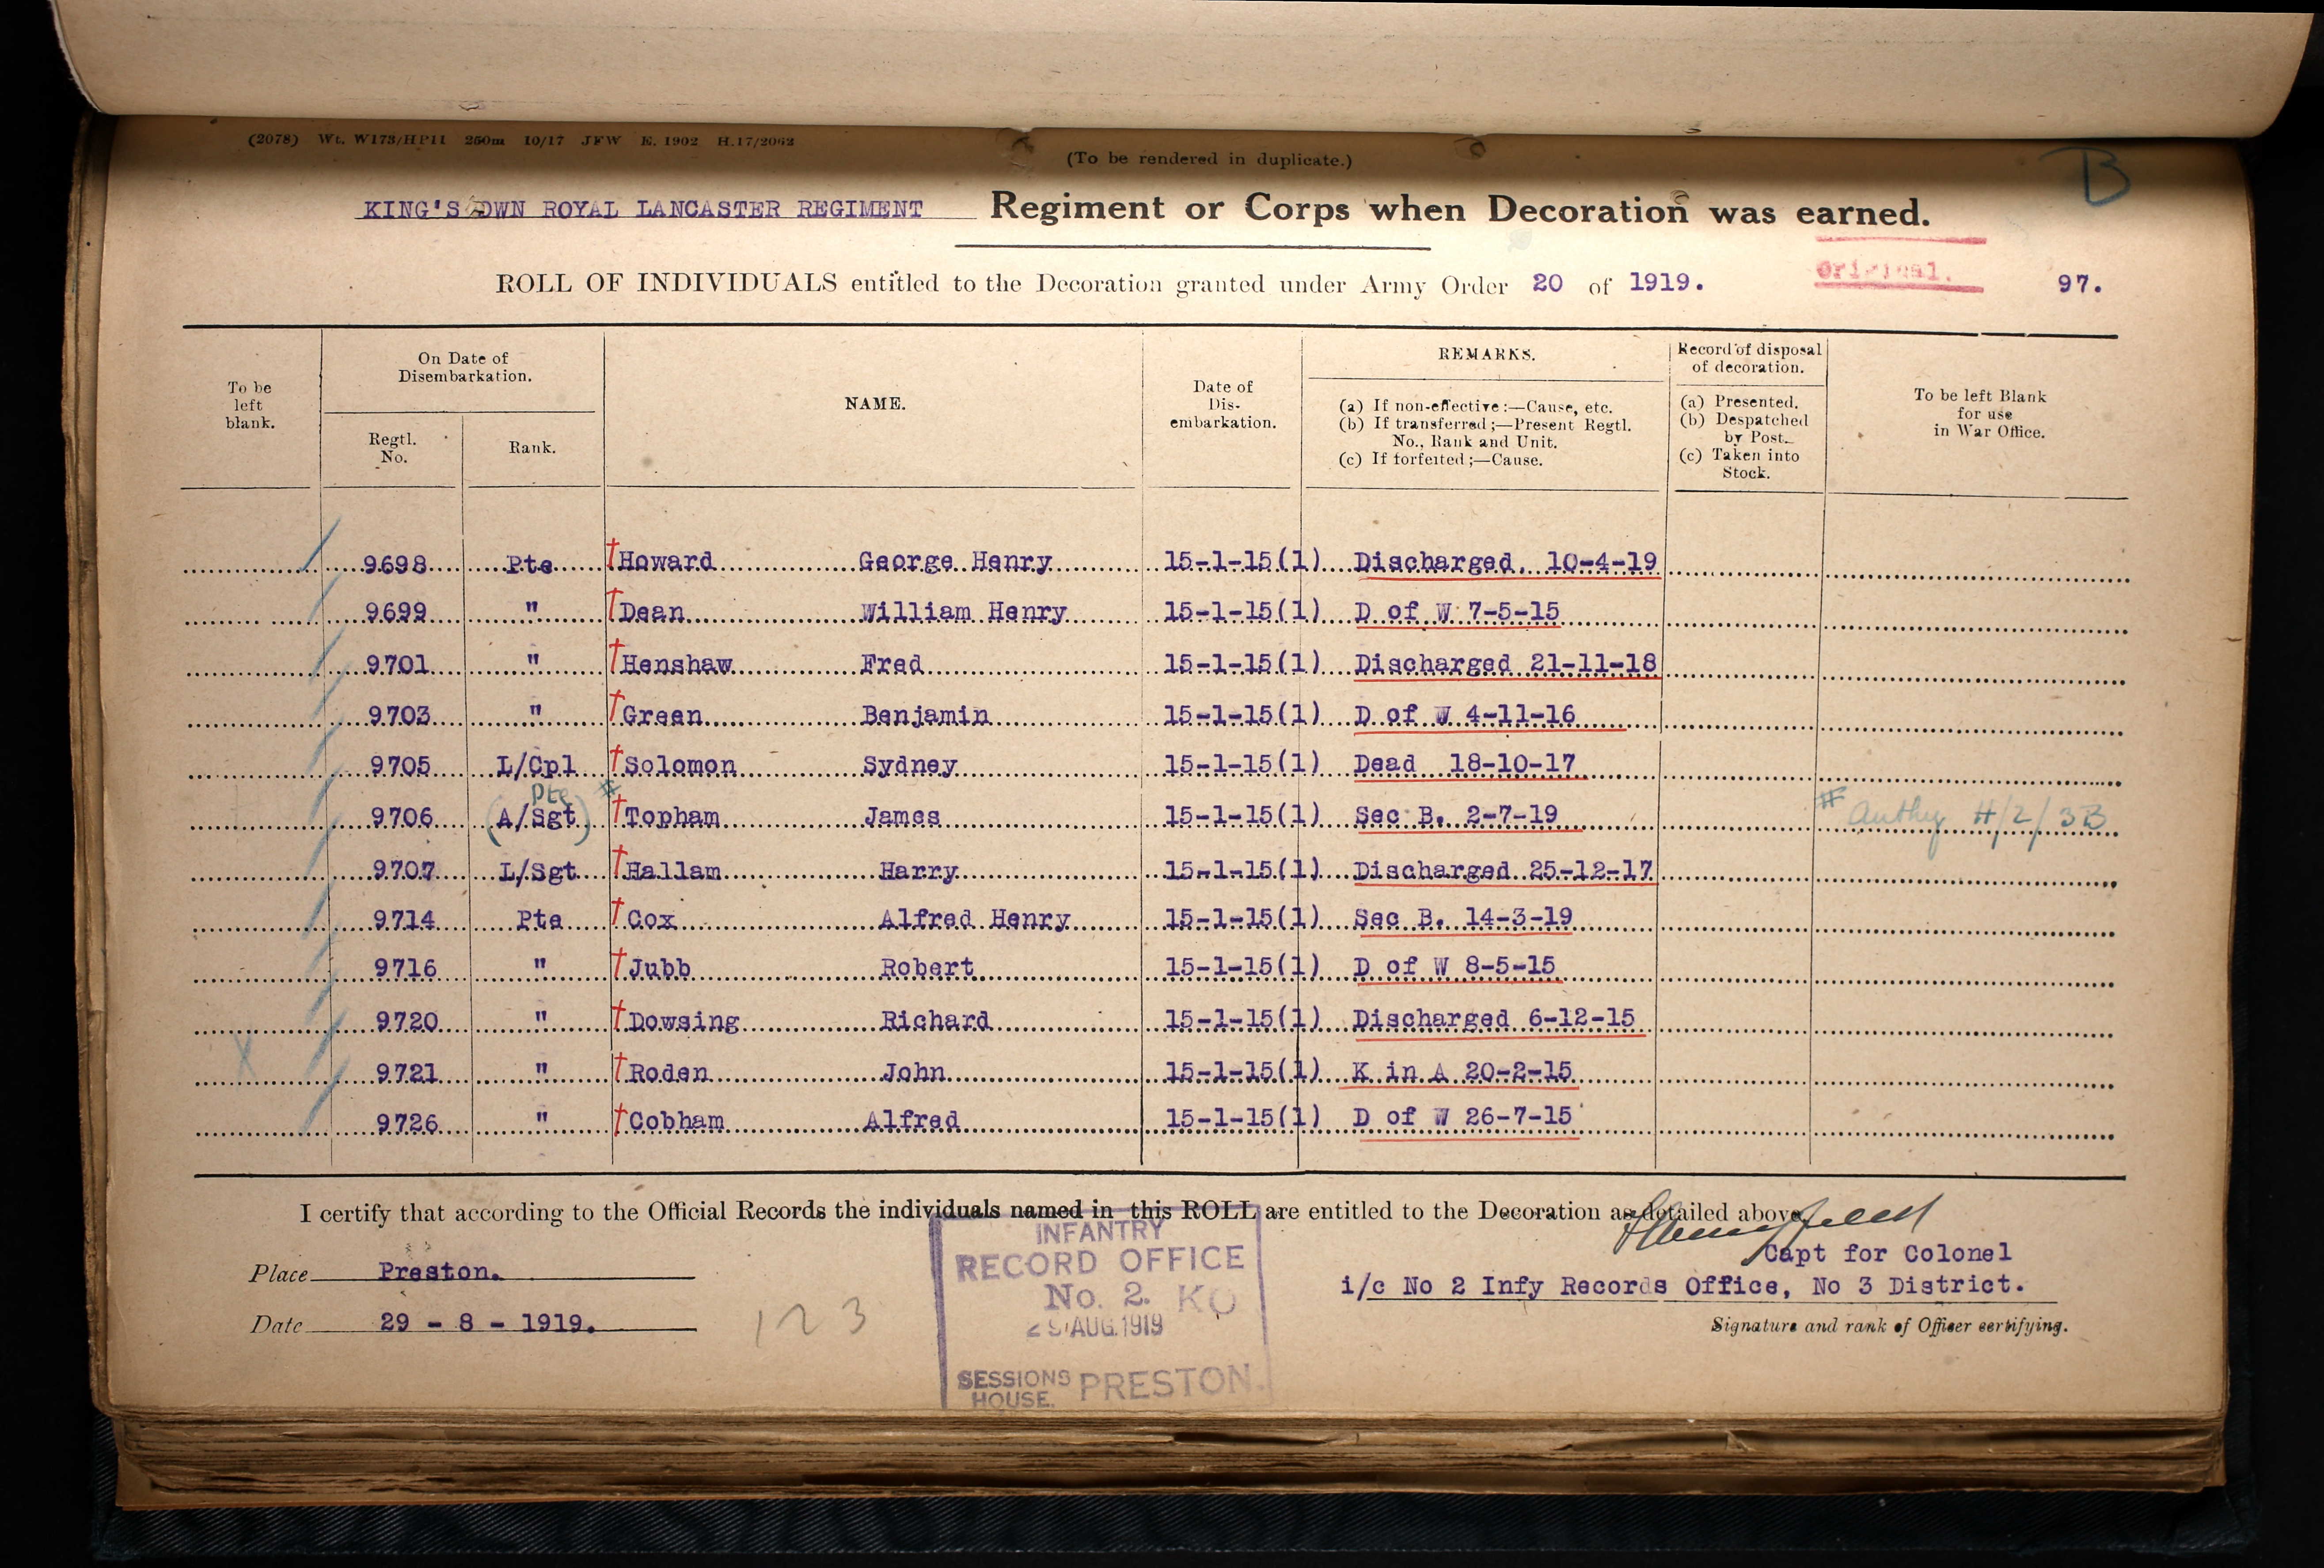 (2078) Wt. W173/HP11 250m 10/17 JFW E. 1902 H.17/2062
(To be rendered in duplicate.)
B
KING'S OWN ROYAL LANCASTER REGIMENT Regiment or Corps when Decoration was earned.
ROLL OF INDIVIDUALS entitled to the Decoration granted under Army Order 20 of 1919.
Original.
97.
To be left blank.
On Date of Disembarkation.
Regtl. No.
Rank.
NAME.
Date of Dis-embarkation.
REMARKS.
(a) If non-effective:—Cause, etc.
(b) If transferred;—Present Regtl.
No., Rank and Unit.
(c) If forfeited;—Cause.
Record of disposal of decoration.
(a) Presented.
(b) Despatched by Post.
(c) Taken into Stock.
To be left Blank for use in War Office.
9698 Pte †Howard George Henry 15-1-15(1) Discharged. 10-4-19
9699 " †Dean William Henry 15-1-15(1) D of W 7-5-15
9701 " †Henshaw Fred 15-1-15(1) Discharged 21-11-18
9703 " †Green Benjamin 15-1-15(1) D of W 4-11-16
9705 L/Cpl †Solomon Sydney 15-1-15(1) Dead 18-10-17
Pte #
9706 (A/Sgt) †Topham James 15-1-15(1) Sec B. 2-7-19 # Authy H/2/3B
9707 L/Sgt †Hallam Harry 15-1-15(1) Discharged 25-12-17
9714 Pte †Cox Alfred Henry 15-1-15(1) Sec B. 14-3-19
9716 " †Jubb Robert 15-1-15(1) D of W 8-5-15
9720 " †Dowsing Richard 15-1-15(1) Discharged 6-12-15
X 9721 " †Roden John 15-1-15(1) K in A 20-2-15
9726 " †Cobham Alfred 15-1-15(1) D of W 26-7-15
I certify that according to the Official Records the individuals named in this ROLL are entitled to the Decoration as detailed above.
Capt for Colonel
i/c No 2 Infy Records Office, No 3 District.
Signature and rank of Officer certifying.
Place Preston.
Date 29 - 8 - 1919.
123
INFANTRY
RECORD OFFICE
No. 2. KO
29 AUG. 1919
SESSIONS HOUSE. PRESTON.